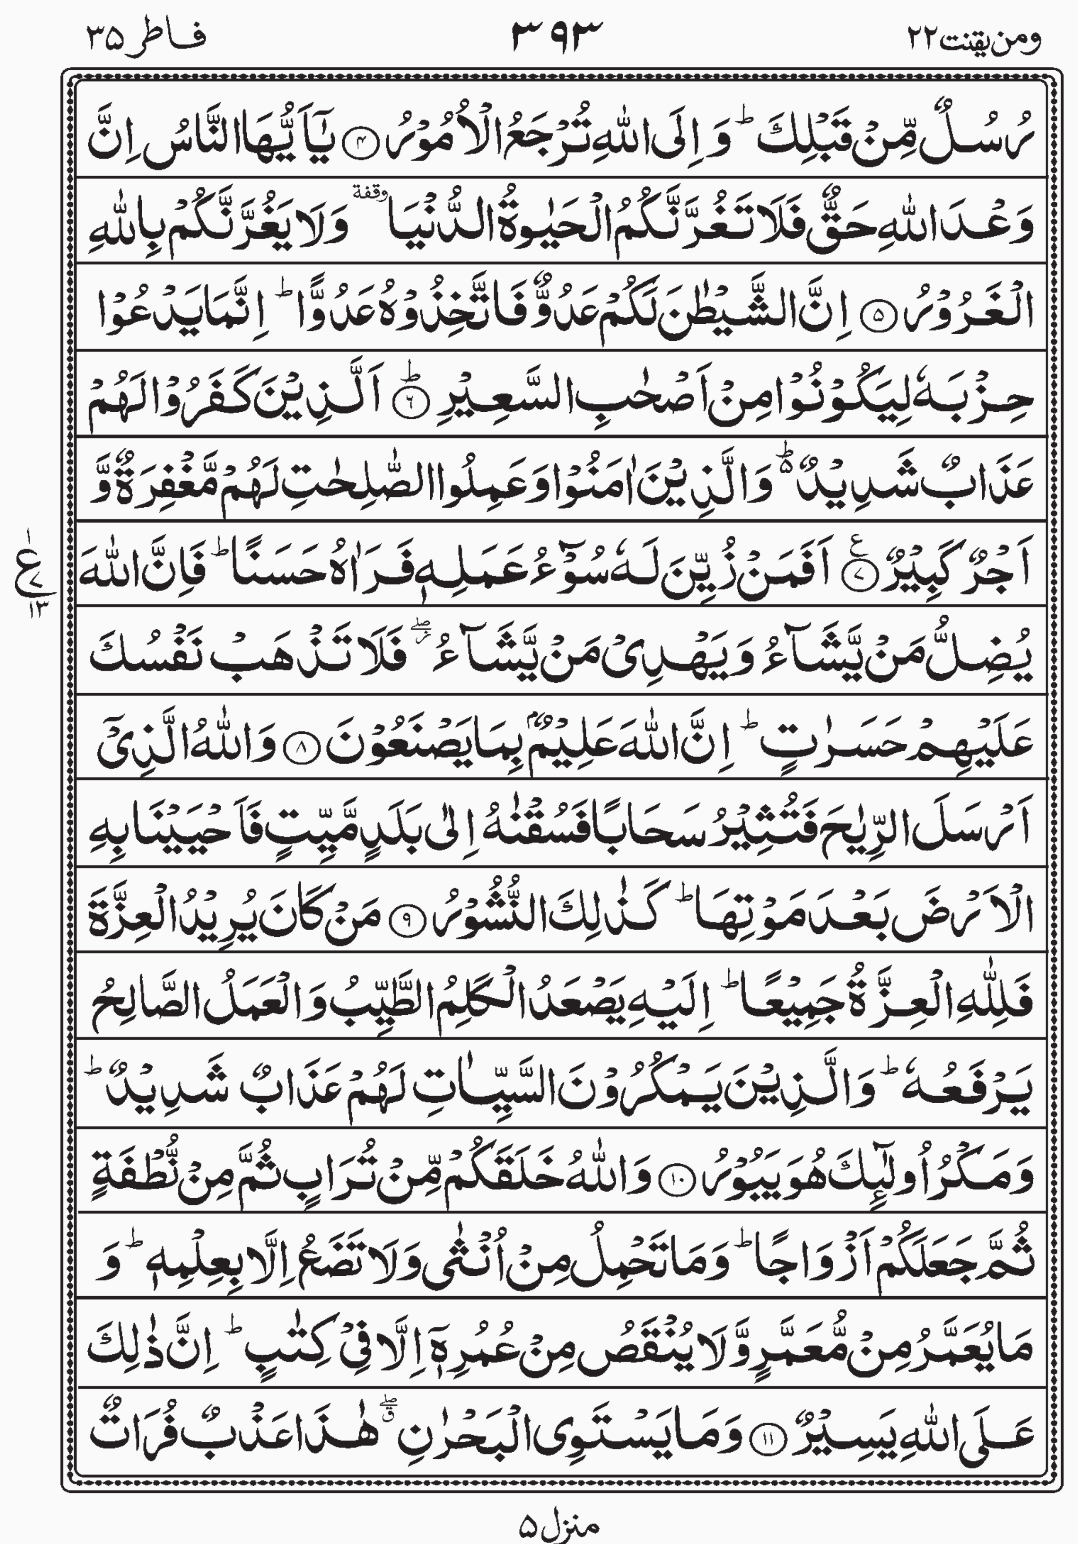 ومن یقنت ۲۲ ۳۹۳ فاطر ۳۵
رُسُلٌ مِّنْ قَبْلِكَ ؕ وَ اِلَی اللّٰهِ تُرْجَعُ الْاُمُوْرُ ﴿۴﴾ یٰۤاَیُّهَا النَّاسُ اِنَّ
وَعْدَ اللّٰهِ حَقٌّ فَلَا تَغُرَّنَّكُمُ الْحَیٰوةُ الدُّنْیَا وقفة وَلَا یَغُرَّنَّكُمْ بِاللّٰهِ
الْغَرُوْرُ ﴿۵﴾ اِنَّ الشَّیْطٰنَ لَكُمْ عَدُوٌّ فَاتَّخِذُوْهُ عَدُوًّا ؕ اِنَّمَا یَدْعُوْا
حِزْبَهٗ لِیَكُوْنُوْا مِنْ اَصْحٰبِ السَّعِیْرِ ﴿۶﴾ؕ اَلَّذِیْنَ كَفَرُوْا لَهُمْ
عَذَابٌ شَدِیْدٌ ؕ۬ وَالَّذِیْنَ اٰمَنُوْا وَعَمِلُوا الصّٰلِحٰتِ لَهُمْ مَّغْفِرَةٌ وَّ
اَجْرٌ كَبِیْرٌ ﴿۷﴾ع اَفَمَنْ زُیِّنَ لَهٗ سُوْٓءُ عَمَلِهٖ فَرَاٰهُ حَسَنًا ؕ فَاِنَّ اللّٰهَ
ع ۷ ۱۳
یُضِلُّ مَنْ یَّشَآءُ وَیَهْدِیْ مَنْ یَّشَآءُ ۖؗ فَلَا تَذْهَبْ نَفْسُكَ
عَلَیْهِمْ حَسَرٰتٍ ؕ اِنَّ اللّٰهَ عَلِیْمٌۢ بِمَا یَصْنَعُوْنَ ﴿۸﴾ وَاللّٰهُ الَّذِیْۤ
اَرْسَلَ الرِّیٰحَ فَتُثِیْرُ سَحَابًا فَسُقْنٰهُ اِلٰی بَلَدٍ مَّیِّتٍ فَاَحْیَیْنَا بِهِ
الْاَرْضَ بَعْدَ مَوْتِهَا ؕ كَذٰلِكَ النُّشُوْرُ ﴿۹﴾ مَنْ كَانَ یُرِیْدُ الْعِزَّةَ
فَلِلّٰهِ الْعِزَّةُ جَمِیْعًا ؕ اِلَیْهِ یَصْعَدُ الْكَلِمُ الطَّیِّبُ وَالْعَمَلُ الصَّالِحُ
یَرْفَعُهٗ ؕ وَالَّذِیْنَ یَمْكُرُوْنَ السَّیِّاٰتِ لَهُمْ عَذَابٌ شَدِیْدٌ ؕ
وَمَكْرُ اُولٰٓىِٕكَ هُوَ یَبُوْرُ ﴿۱۰﴾ وَاللّٰهُ خَلَقَكُمْ مِّنْ تُرَابٍ ثُمَّ مِنْ نُّطْفَةٍ
ثُمَّ جَعَلَكُمْ اَزْوَاجًا ؕ وَمَا تَحْمِلُ مِنْ اُنْثٰی وَلَا تَضَعُ اِلَّا بِعِلْمِهٖ ؕ وَ
مَا یُعَمَّرُ مِنْ مُّعَمَّرٍ وَّلَا یُنْقَصُ مِنْ عُمُرِهٖۤ اِلَّا فِیْ كِتٰبٍ ؕ اِنَّ ذٰلِكَ
عَلَی اللّٰهِ یَسِیْرٌ ﴿۱۱﴾ وَمَا یَسْتَوِی الْبَحْرٰنِ ۖۗ هٰذَا عَذْبٌ فُرَاتٌ
منزل ۵